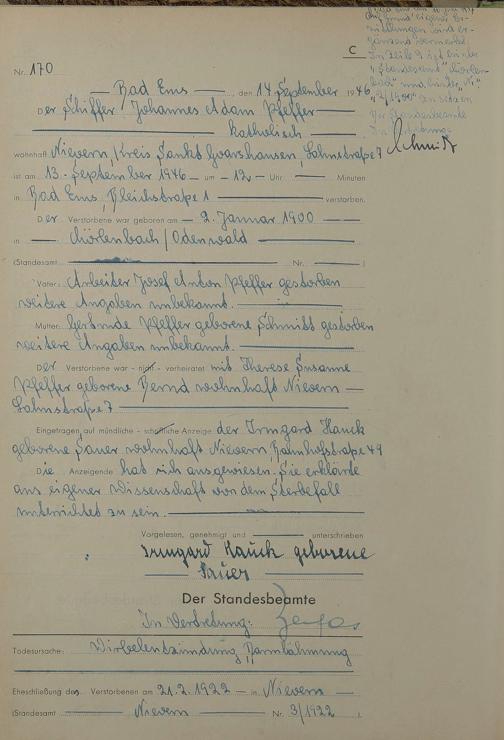 C
Nr. 170
Bad Ems, den 14. September 1946
Der Schiffer Johannes Adam Pfeffer
katholisch
wohnhaft Nievern, Kreis Sankt Goarshausen, Lahnstraße 7
ist am 13. September 1946 um 12 Uhr Minuten
in Bad Ems, Bleichstraße 1 verstorben.
Der Verstorbene war geboren am 2. Januar 1900
in Mörlenbach / Odenwald
(Standesamt Nr. )
Vater: Arbeiter Josef Anton Pfeffer gestorben
weitere Angaben unbekannt.
Mutter: Gertrude Pfeffer geborene Schmitt gestorben
weitere Angaben unbekannt.
Der Verstorbene war – nicht – verheiratet mit Therese Susanne
Pfeffer geborene Bernd wohnhaft Nievern
Lahnstraße 7
Eingetragen auf mündliche – schriftliche Anzeige der Irmgard Hauck
geborene Sauer wohnhaft Nievern, Bahnhofstraße 49
Die Anzeigende hat sich ausgewiesen. Sie erklärte
aus eigener Wissenschaft von dem Sterbefall
unterrichtet zu sein.
Vorgelesen, genehmigt und unterschrieben
Irmgard Hauck geborene
Sauer
Der Standesbeamte
In Vertretung:
Todesursache: Wirbelentzündung, Darmlähmung
Eheschließung des Verstorbenen am 21.2.1922 in Nievern
(Standesamt Nievern Nr. 3/1922 ).